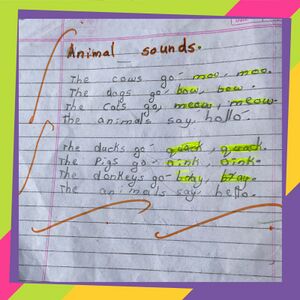 Animal sounds.
The cows go- moo, moo.
The dogs go- bow, bow.
The cats go, meow, meow.
The animals say hello.
The ducks go- quack, quack.
The Pigs go- oink, oink.
The donkeys go- bray, bray.
The animals say hello.